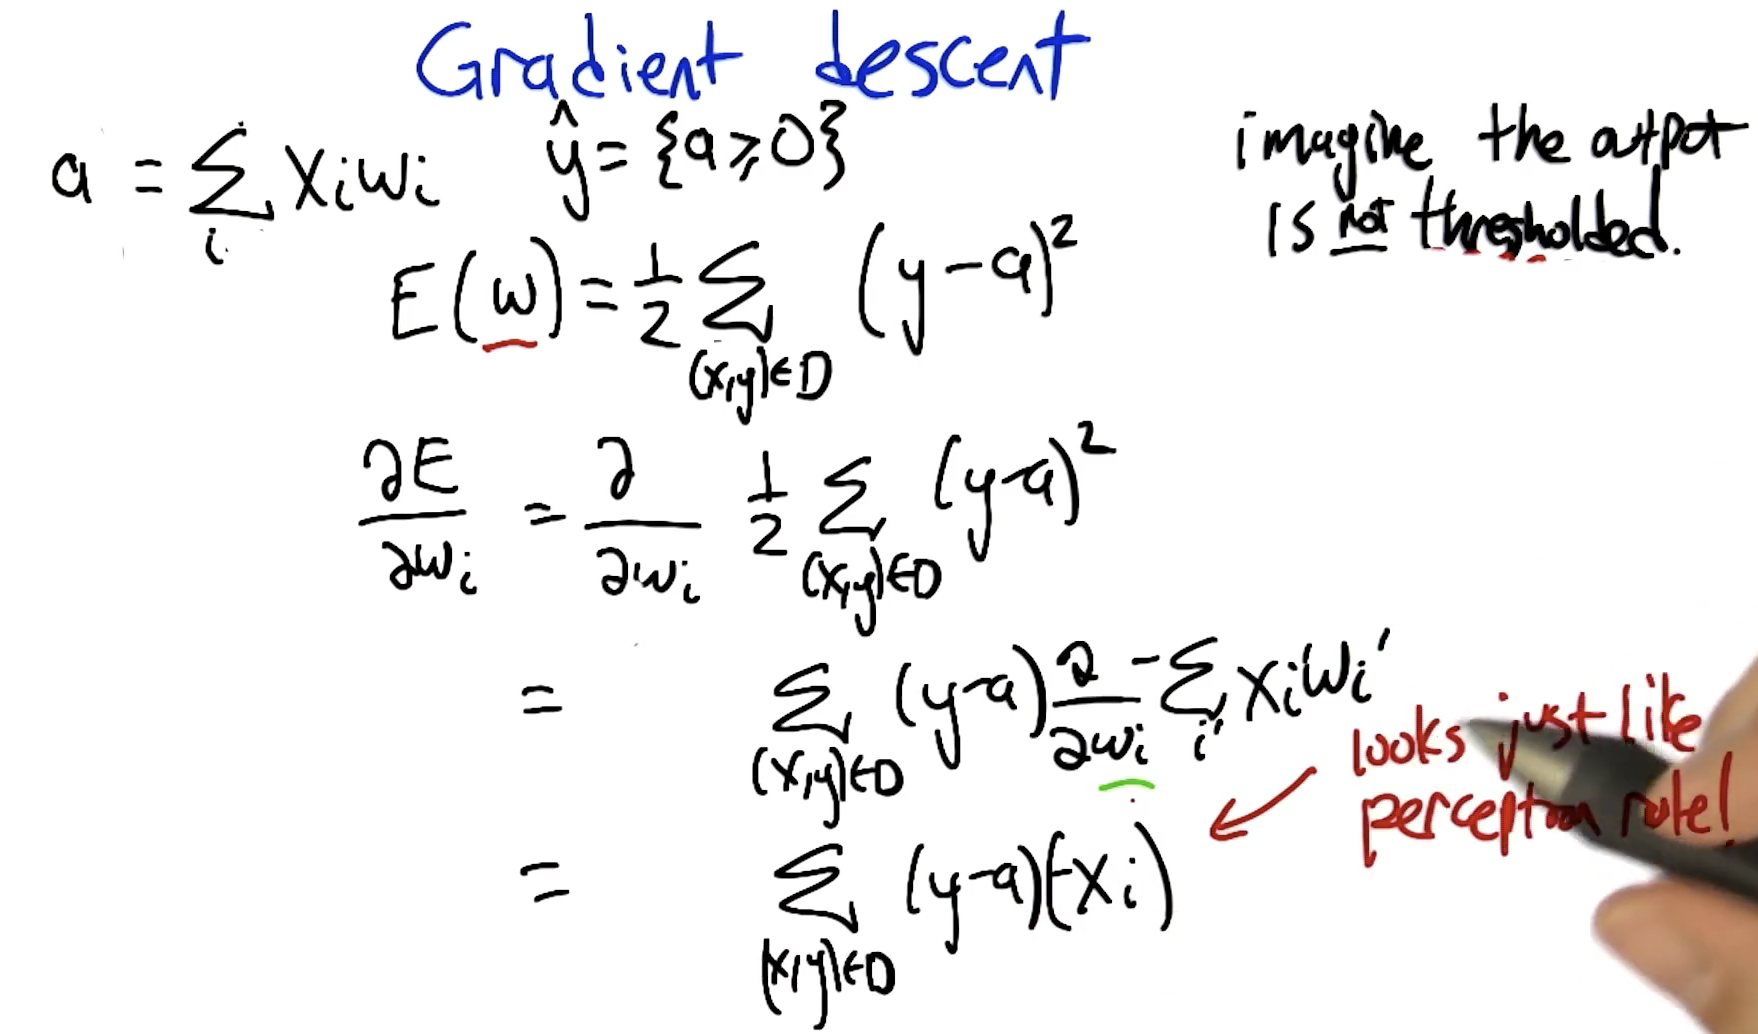 Gradient descent
a = Σ_i x_i w_i   ŷ = {a ≥ 0}
imagine the output
is not thresholded.
E(w) = 1/2 Σ_{(x,y)∈D} (y-a)^2
∂E/∂w_i = ∂/∂w_i 1/2 Σ_{(x,y)∈D} (y-a)^2
= Σ_{(x,y)∈D} (y-a) ∂/∂w_i -Σ_{i'} x_i w_i'
looks just like
perceptron rule!
= Σ_{(x,y)∈D} (y-a)(-x_i)